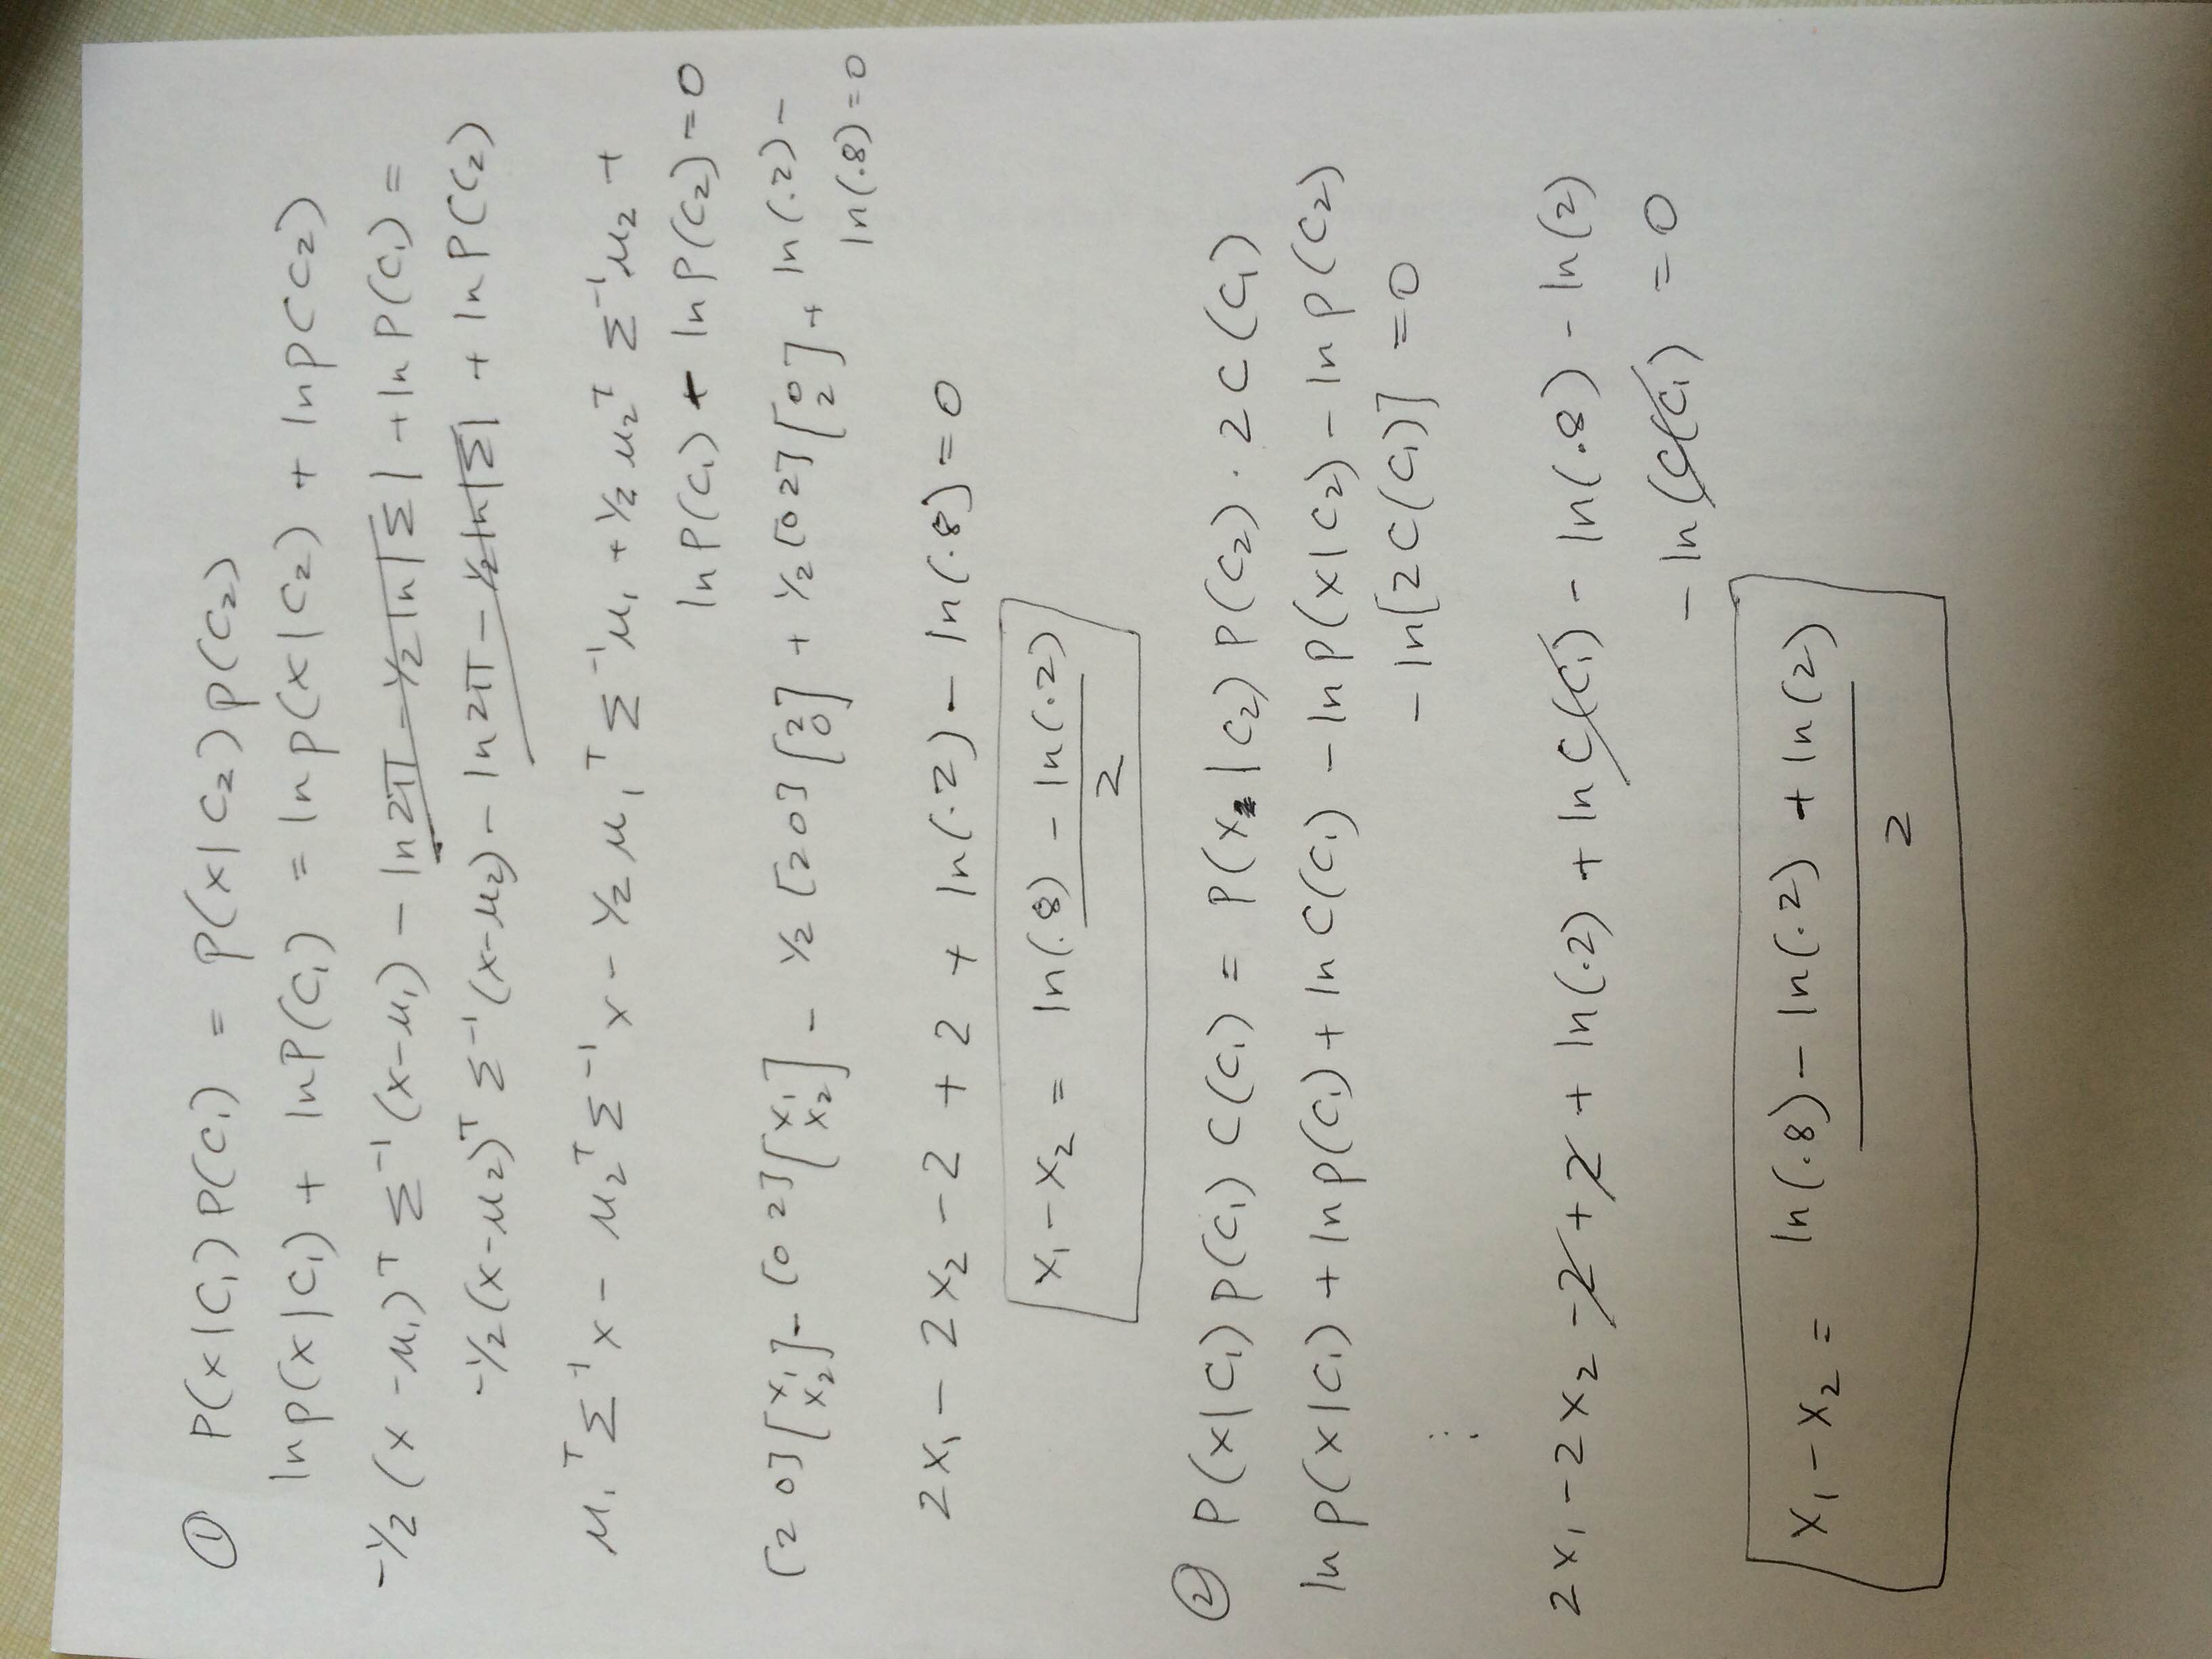 ① P(x|C₁) P(C₁) = p(x|C₂) p(C₂)
ln p(x|C₁) + ln P(C₁) = ln p(x|C₂) + ln p(C₂)
-½ (x-μ₁)ᵀ Σ⁻¹ (x-μ₁) - ln 2π - ½ ln|Σ| + ln P(C₁) =
-½ (x-μ₂)ᵀ Σ⁻¹ (x-μ₂) - ln 2π - ½ ln|Σ| + ln P(C₂)
μ₁ᵀ Σ⁻¹ x - μ₂ᵀ Σ⁻¹ x - ½ μ₁ᵀ Σ⁻¹ μ₁ + ½ μ₂ᵀ Σ⁻¹ μ₂ +
ln P(C₁) - ln P(C₂) = 0
[2 0] [x₁ x₂] - [0 2] [x₁ x₂] - ½ [2 0] [2 0] + ½ [0 2] [0 2] + ln(.2) -
ln(.8) = 0
2x₁ - 2x₂ - 2 + 2 + ln(.2) - ln(.8) = 0
x₁ - x₂ = ln(.8) - ln(.2)
2
② P(x|C₁) p(C₁) C(C₁) = P(x|C₂) P(C₂) · 2C(C₁)
ln p(x|C₁) + ln p(C₁) + ln C(C₁) - ln P(x|C₂) - ln p(C₂)
- ln[2C(C₁)] = 0
⋮
2x₁ - 2x₂ - 2 + 2 + ln(.2) + ln C(C₁) - ln(.8) - ln(2)
- ln(C(C₁) = 0
x₁ - x₂ = ln(.8) - ln(.2) + ln(2)
2